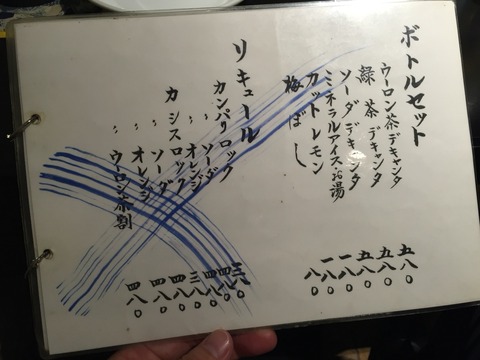 ボトルセット
ウーロン茶デキャンタ 五八〇
緑茶デキャンタ 五八〇
ソーダデキャンタ 五八〇
ミネラルアイス・お湯 一八〇
カットレモン 一八〇
梅ぼし 八〇
リキュール
カンパリロック 三八〇
〃 ソーダ 四八〇
〃 オレンジ 四八〇
カシスロック 三八〇
〃 ソーダ 四八〇
〃 オレンジ 四八〇
〃 ウーロン茶割 四八〇